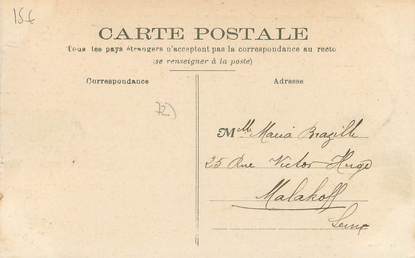 15€
CARTE POSTALE
Tous les pays étrangers n'acceptent pas la correspondance au recto
(se renseigner à la poste)
Correspondance
Adresse
Mlle Maria Brazille
25 Rue Victor Hugo
Malakoff
Seine